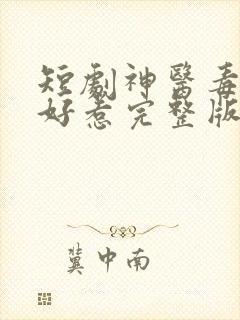 短劇神醫毒
好惹完整版
冀中南